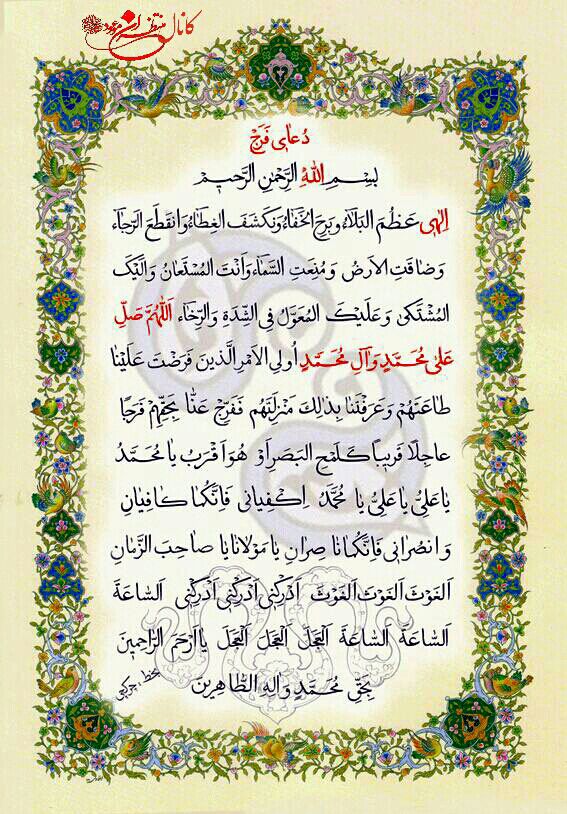 کانال منتظران موعود
دُعای فَرَج
بِسْمِ اللهِ الرَّحْمٰنِ الرَّحیمِ
اِلٰهی عَظُمَ البَلاءُ وَبَرِحَ الخَفاءُ وَانْکَشَفَ الغِطاءُ وَانْقَطَعَ الرَّجاءُ
وَضاقَتِ الاَرْضُ وَمُنِعَتِ السَّماءُ وَاَنْتَ المُسْتَعانُ وَاِلَیْکَ
المُشْتَکیٰ وَعَلَیْکَ المُعَوَّلُ فِی الشِّدَةِ وَالرَّخاءِ اَللّٰهُمَّ صَلِّ
عَلیٰ مُحَمَّدٍ وَآلِ مُحَمَّدٍ اُولِی الاَمْرِ الَّذینَ فَرَضْتَ عَلَیْنا
طاعَتَهُمْ وَعَرَّفْتَنا بِذٰلِکَ مَنْزِلَتَهُم فَفَرِّجْ عَنّا بِحَقِّهِمْ فَرَجًا
عاجِلًا قَریبًا کَلَمْحِ البَصَرِ اَوْ هُوَ اَقْرَبُ یا مُحَمَّدُ
یا عَلِیُّ یا عَلِیُّ یا مُحَمَّدُ اِکْفِیانی فَاِنَّکُما کافِیانِ
وَانْصُرانی فَاِنَّکُما ناصِرانِ یا مَوْلانا یا صاحِبَ الزَّمانِ
اَلغَوْثَ اَلغَوْثَ اَلغَوْثَ اَدْرِکْنی اَدْرِکْنی اَدْرِکْنی اَلسّاعَةَ
اَلسّاعَةَ اَلسّاعَةَ اَلعَجَلَ اَلعَجَلَ اَلعَجَلَ یا اَرْحَمَ الرّاحِمینَ
بِحَقِّ مُحَمَّدٍ وَآلِهِ الطّاهِرینَ